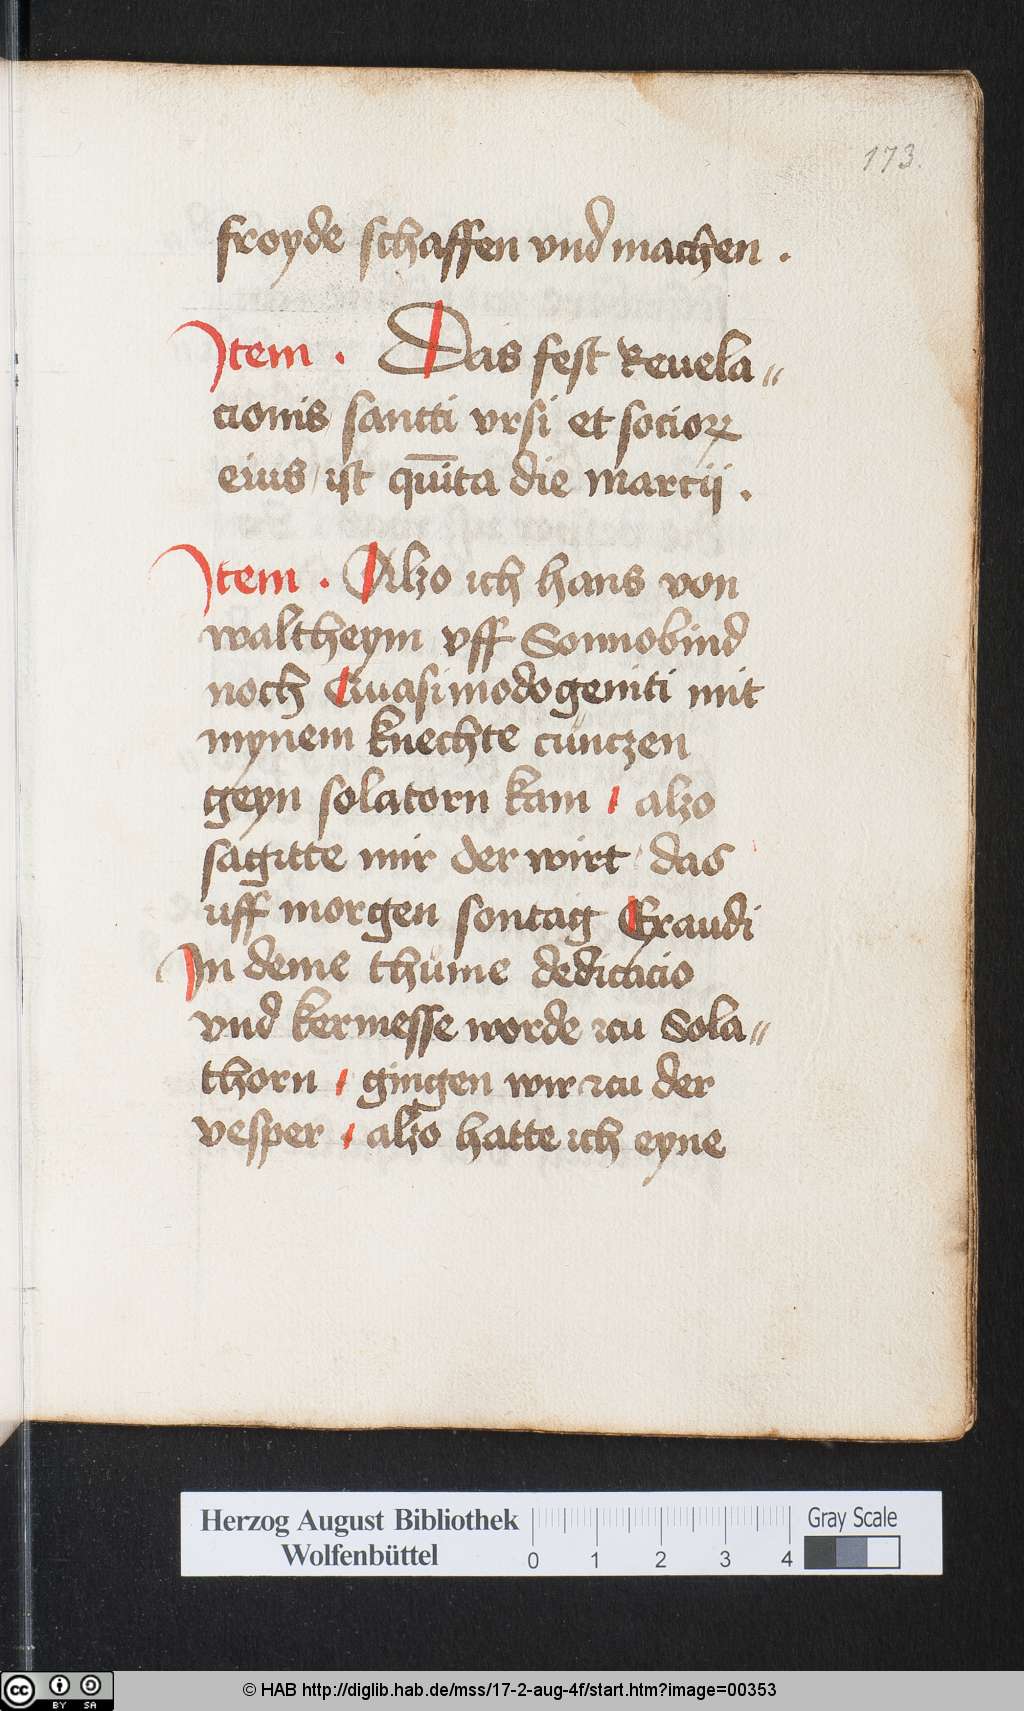 173.
froyde schaffen vnd machen .
Item . Das fest Reuela〃
cionis santti vrsi et socioꝝ
eius / ist qūīta die marcij .
Item . Alzo ich hans von
waltheym vff Sonnobind
noch Quasimodogeniti mit
mynem knechte cüntzen
geyn solatorn kam / alzo
sagitte mir der wirt / das
uff morgen sontag Exaudi
In deme thůme dedicacio
vnd kermesse worde zcu Sola〃
thorn / gingen wir zcu der
vesper / alzo hatte ich eyne
Herzog August Bibliothek
Wolfenbüttel
0 1 2 3 4
Gray Scale
cc BY SA
© HAB http://diglib.hab.de/mss/17-2-aug-4f/start.htm?image=00353